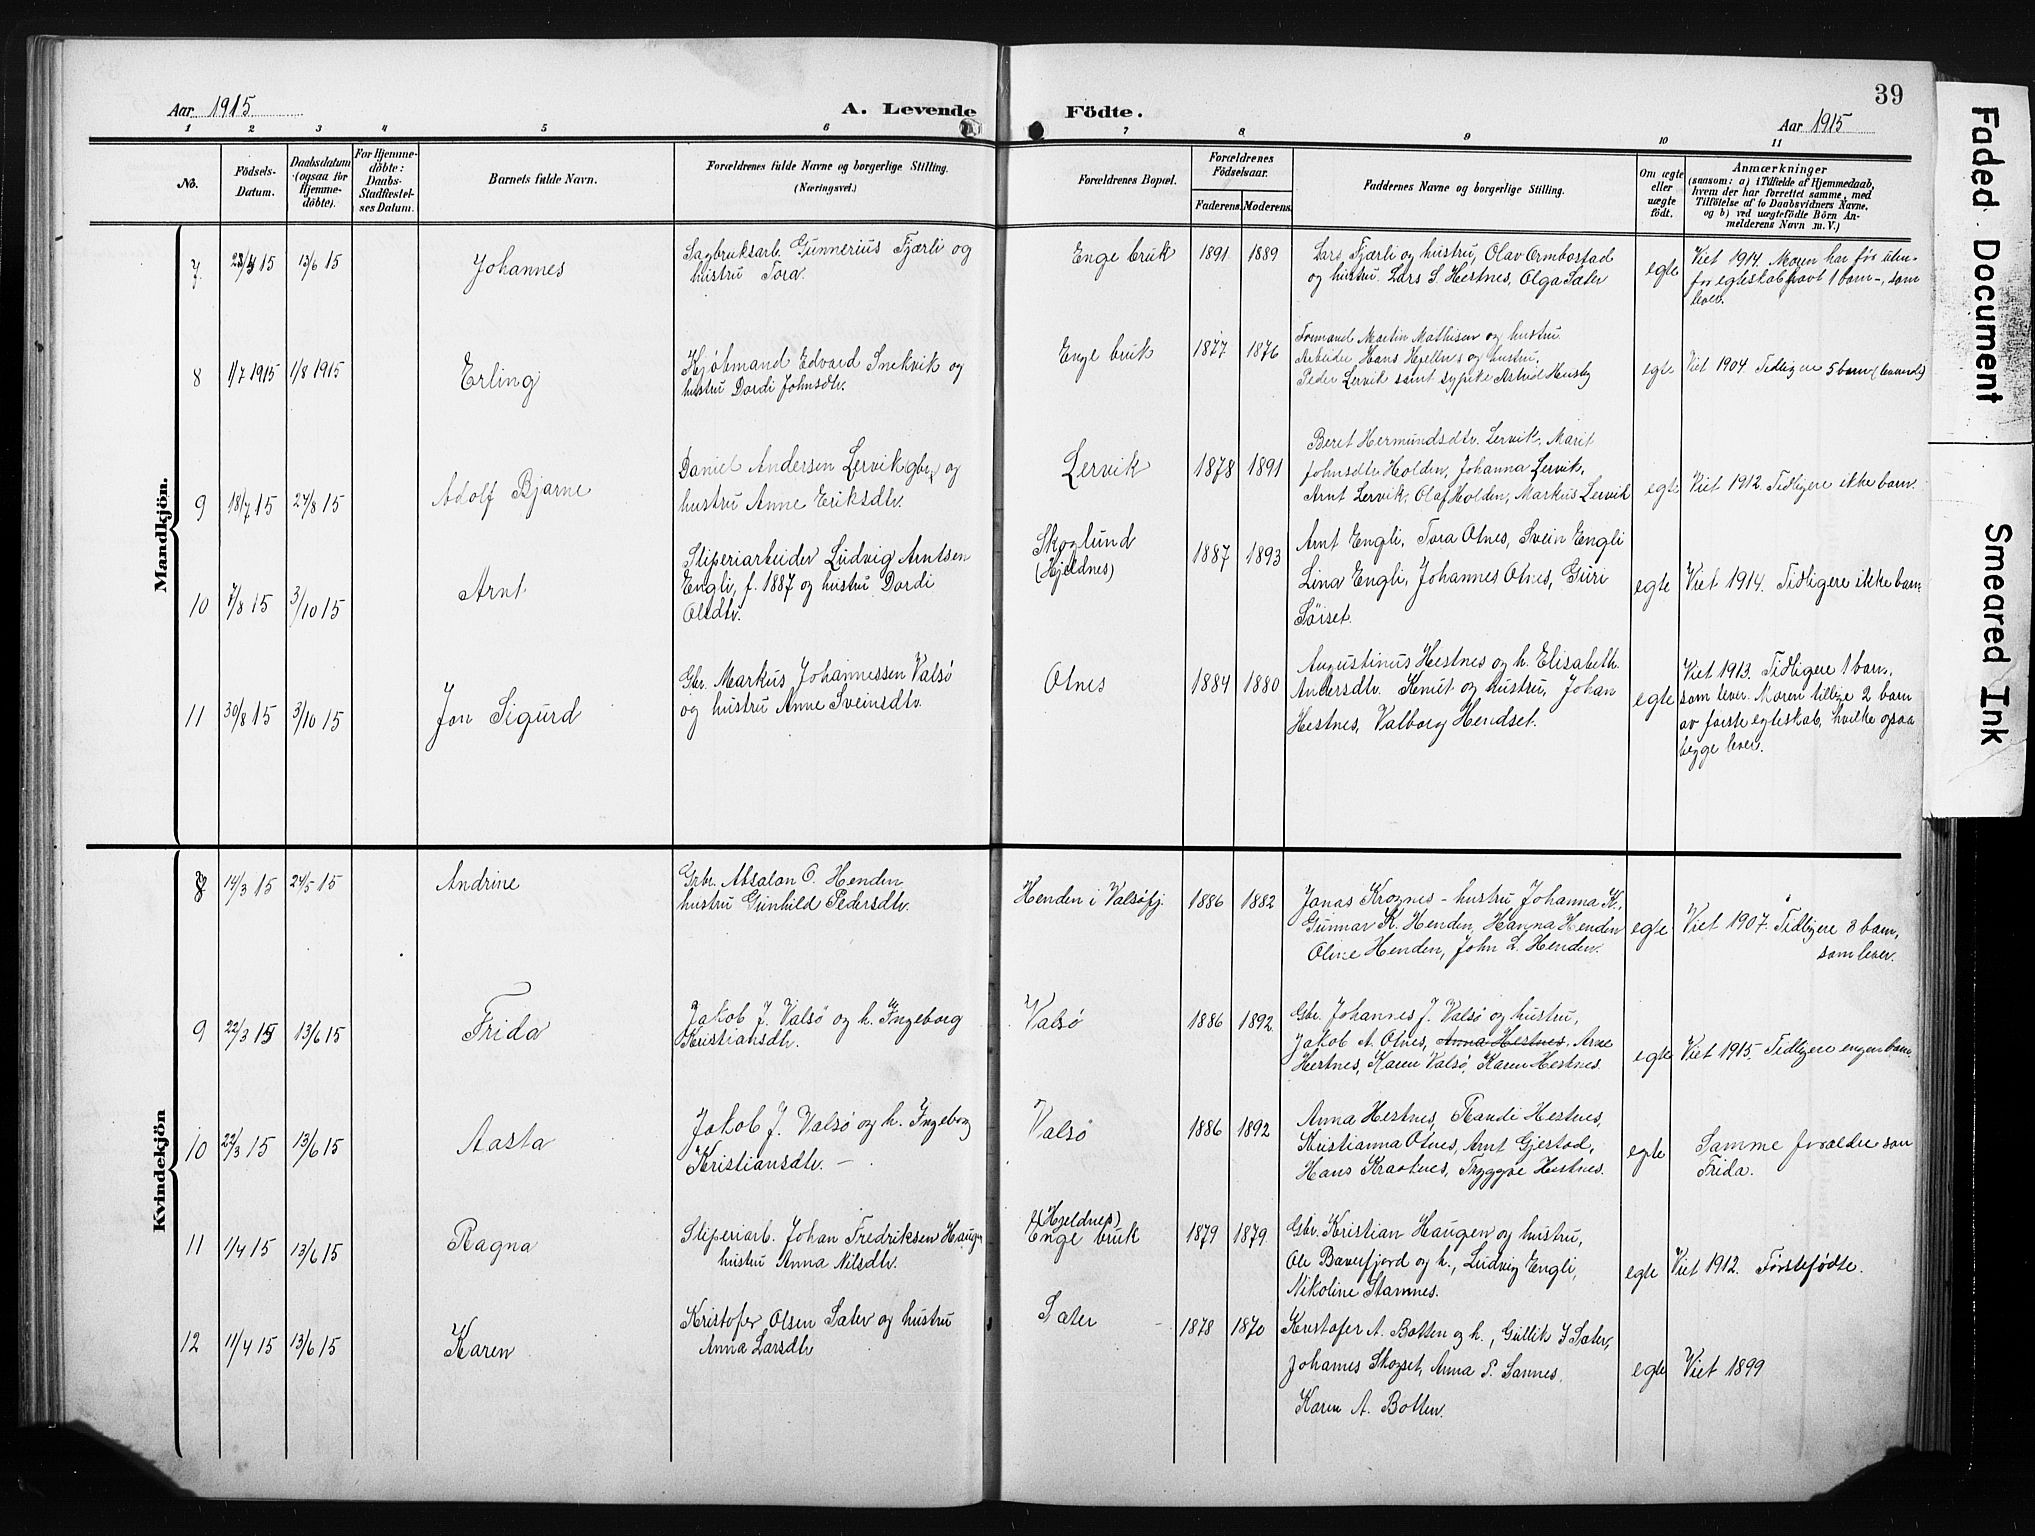 39
Aar 1915
A. Levende Födte.
Aar 1915
1 2 3 4 5 6 7 8 9 10 11
No.
Födsels-
Datum.
Daabsdatum
(ogsaa for
Hjemme-
döbte).
For Hjemme-
döbte:
Daabs-
Stadfæstel-
ses Datum.
Barnets fulde Navn.
Forældrenes fulde Navne og borgerlige Stilling.
(Næringsvei.)
Forældrenes Bopæl.
Forældrenes
Födselsaar.
Faderens. Moderens.
Faddernes Navne og borgerlige Stilling.
Om ægte
eller
uægte
födt.
Anmærkninger
(saasom: a) i Tilfælde af Hjemmedaab,
hvem der har forrettet samme, med
Tilföielse af to Daabsvidners Navne,
og b) ved uægtefödte Börn An-
melderens Navn m. V.)
Mandkjön.
7 15 13/6 15 Johannes
Sagbruksarb. Gunnerius Fjærli og
hustru Tora.
Enge bruk 1891 1889
Lars Fjærli og hustru, Olav Ormbostad
og hustru. Lars S. Hestnes, Olga Sæter
egte
Viet 1914. Moren har før uten-
for egteskab havt 1 barn-, som
lever.
8 1/7 1915 1/8 1915 Erling
Kjøbmand Edvard Snekvik og
hustru Dordi Johnsdtr.
Enge bruk 1877 1876
Formand Martin Mathisen og hustru
Arbeider Hans Hjellnes og hustru,
Peder Lervik samt sypike Astrid Husby
egte
Viet 1904. Tidligere 5 barn (levende)
9 18/7 15 27/8 15 Adolf Bjarne
Daniel Andersen Lervik gbr. og
hustru Anne Eriksdtr.
Lervik 1878 1891
Beret Hermundsdtr. Lervik, Marit
Johnsdtr. Holden, Johanna Lervik,
Arnt Lervik, Olaf Holden, Markus Lervik
egte
Viet 1912. Tidligere ikke barn.
10 7/8 15 3/10 15 Arnt
Sliperiarbeider Ludvig Arntsen
Engli, f. 1887 og hustru Dordi
Olsdtr.
Skoglund
(Hjeldnes)
1887 1893
Arnt Engli, Tora Otnes, Svein Engli
Lina Engli, Johannes Otnes, Guri
Söiset.
egte
Viet 1914. Tidligere ikke barn.
11 30/8 15 3/10 15 Jon Sigurd
Gbr. Markus Johannessen Valsö
og hustru Anne Sveinsdtr.
Otnes 1884 1880
Augustinus Hestnes og h. Elisabeth
Andersdtr. Knut og hustru, Johan
Hestnes, Valborg Hendset.
egte
Viet 1913. Tidligere 1 barn,
som lever. Moren tillige 2 barn
av første egteskab, hvilke ogsaa
begge lever.
Kvindekjön
8 14/3 15 24/5 15 Andrine
Grbr. Absalon O. Henden
hustru Gunhild Pedersdtr.
Henden i Valsöfj. 1886 1882
Jonas Krognes - hustru Johanna K.,
Gunnar K. Henden, Hanna Henden
Oline Henden, John L. Henden.
egte
Viet 1907. Tidligere 3 barn,
som lever.
9 22/3 15 13/6 15 Frida
Jakob J. Valsö og h. Ingeborg
Kristiansdtr.
Valsö 1886 1892
Gbr. Johannes J. Valsö og hustru,
Jakob A. Otnes, Anna Hestnes, Arne
Hestnes, Karen Valsö, Karen Hestnes.
egte
Viet 1915. Tidligere ingen barn.
10 22/3 15 13/6 15 Aasta
Jakob J. Valsö og h. Ingeborg
Kristiansdtr. -
Valsö 1886 1892
Anna Hestnes, Randi Hestnes,
Kristianna Otnes, Arnt Gjestad,
Hans Kraatnes, Tryggve Hestnes.
egte
Samme forældre som
Frida.
11 1/4 15 13/6 15 Ragna
Sliperiarb. Johan Fredriksen Haugen
hustru Anna Nilsdtr.
(Hjeldnes)
Enge bruk
1879 1879
Gbr. Kristian Haugen og hustru,
Ole Bæverfjord og h., Ludvig Engli,
Nikoline Stamnes.
egte
Viet 1912. Førstefødte.
12 11/4 15 13/6 15 Karen
Kristofer Olsen Sæter og hustru
Anna Larsdtr
Sæter 1878 1870
Kristofer A. Botten og h., Gullik I Sæter,
Johannes Skogset, Anna P. Sannes.
Karen A. Botten.
egte
Viet 1899
Faded Document
Smeared Ink